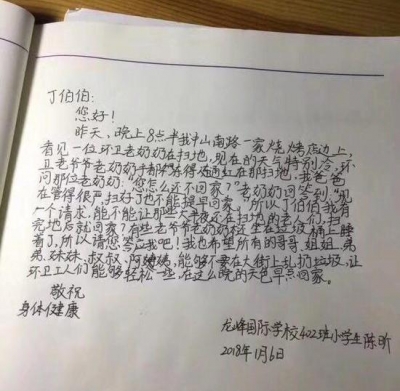 丁伯伯:
您好!
昨天,晚上8点半我中山南路一家烧烤店边上,
看见一位环卫老奶奶在扫地,现在的天气特别冷,环
卫老爷爷老奶奶手都冻得通红在那扫地,我爸爸
问那位老奶奶:"您怎么还不回家?"老奶奶回答到"现
在管得很严,扫好了也不能提早回家。"所以丁伯伯我有
一个请求,能不能让那些大半夜还在扫地的老人们,扫
完地后就回家?有些老爷爷老奶奶都坐在垃圾桶上睡
着了,所以请您答应我吧!我也希望所有的哥哥、姐姐、弟
弟、妹妹、叔叔、阿姨,能够不要在大街上乱扔垃圾,让
环卫工人们能够轻松一些,在这么晚的天色早点回家。
敬祝
身体健康
龙峰国际学校402班小学生陈昕
2018年1月6日